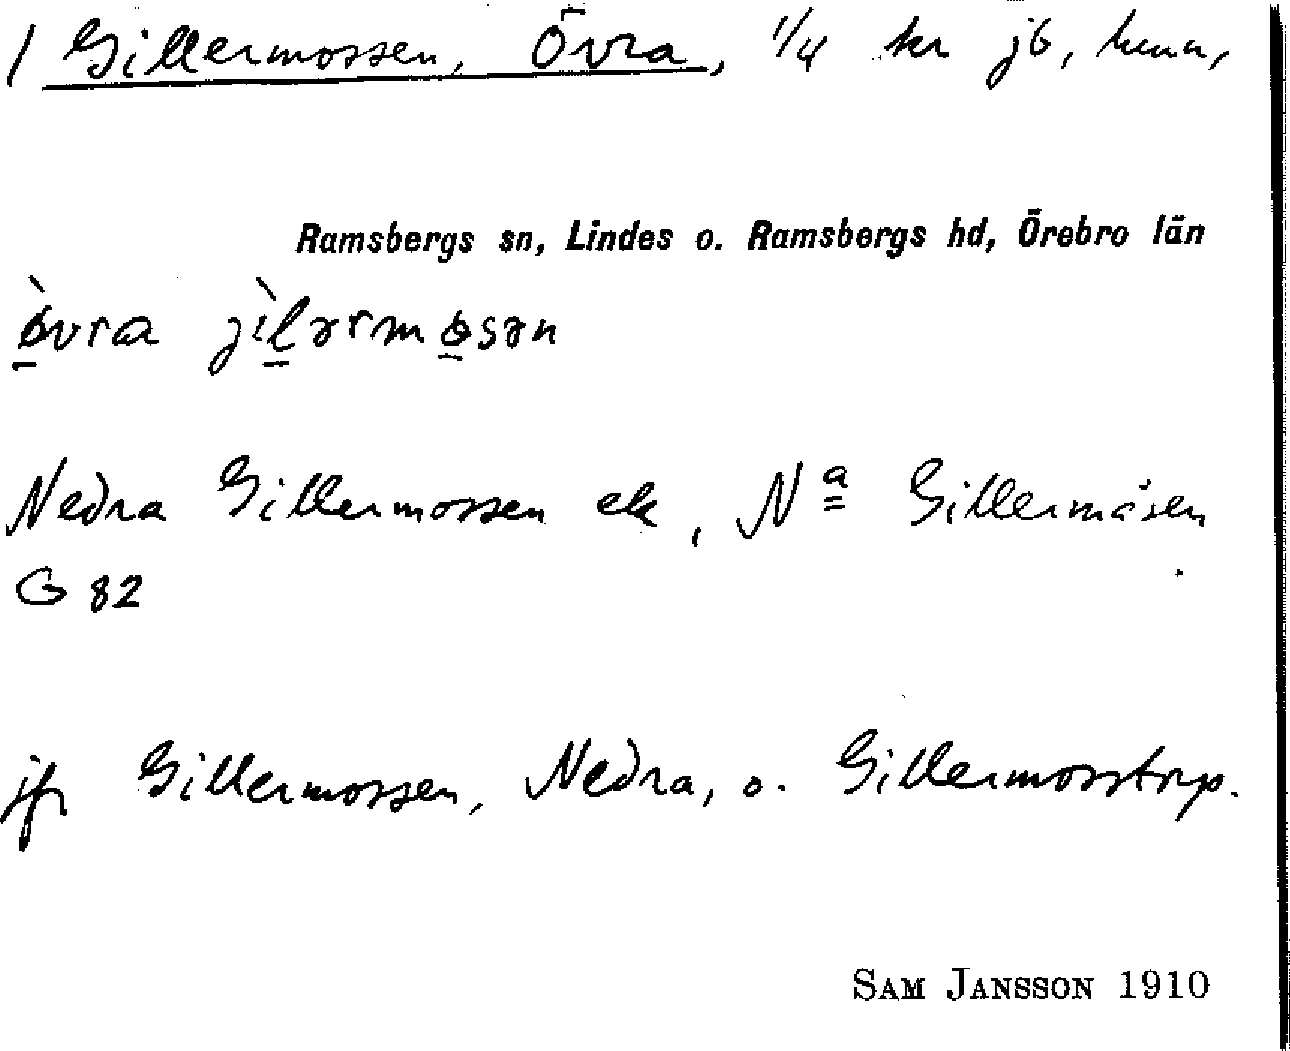 / Gillermossen, Övra, 1/4 kr jb, hema,
Ramsbergs sn, Lindes o. Ramsbergs hd, Örebro län
òvra jìlərmosən
Nedra Gillermossen ek, Nª Gillermåsen
G 82
jfr Gillermossen, Nedra, o. Gillermosstorp.
SAM JANSSON 1910